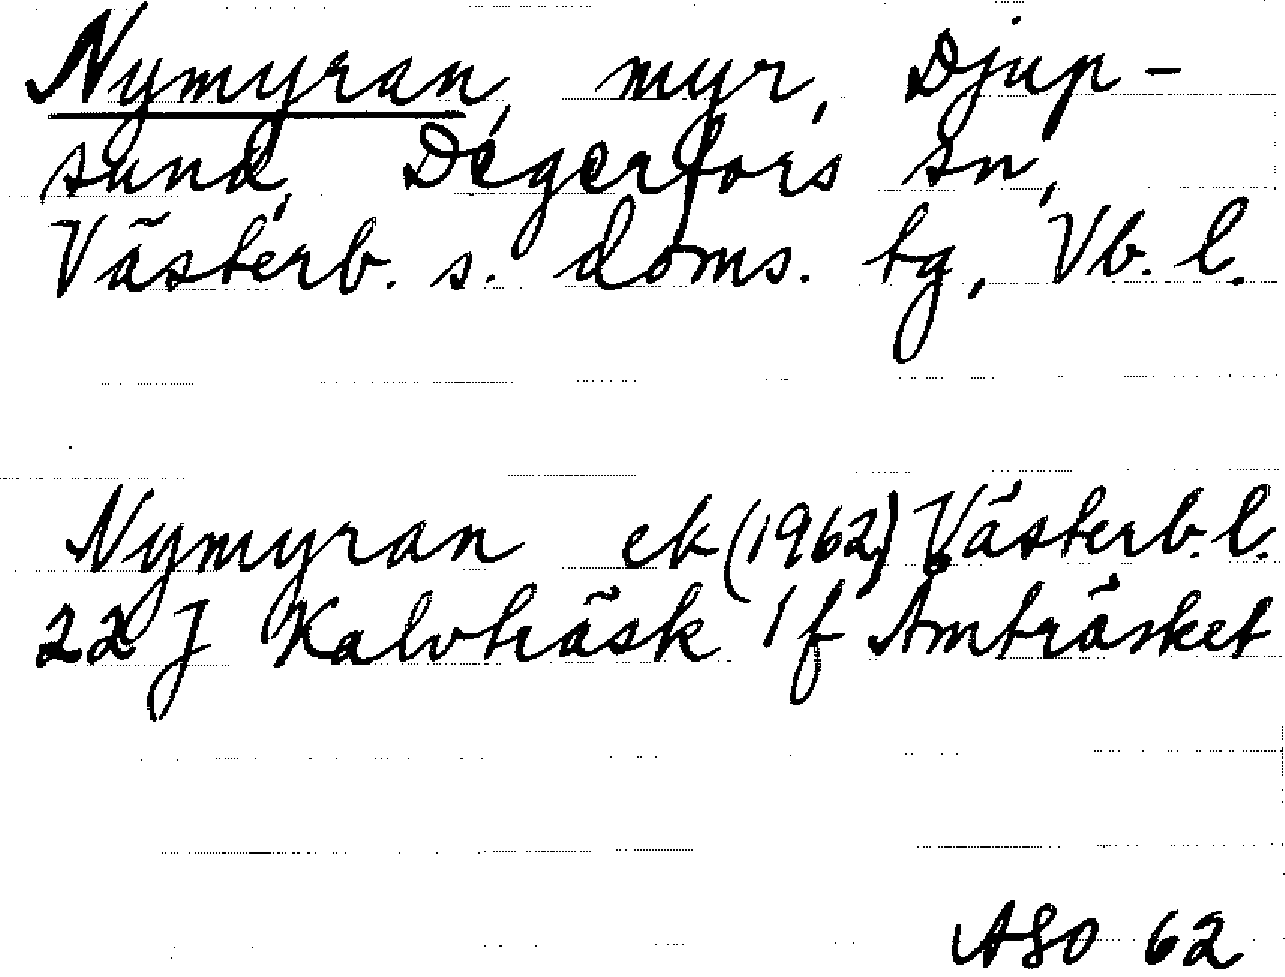 Nymyran, myr, Djup-
sund, Degerfors sn,
Västerb. s. doms. tg, Vb. l.
Nymyran ek (1962) Västerb. l.
22 J Kalvträsk 1 f Amträsket
ASO 62